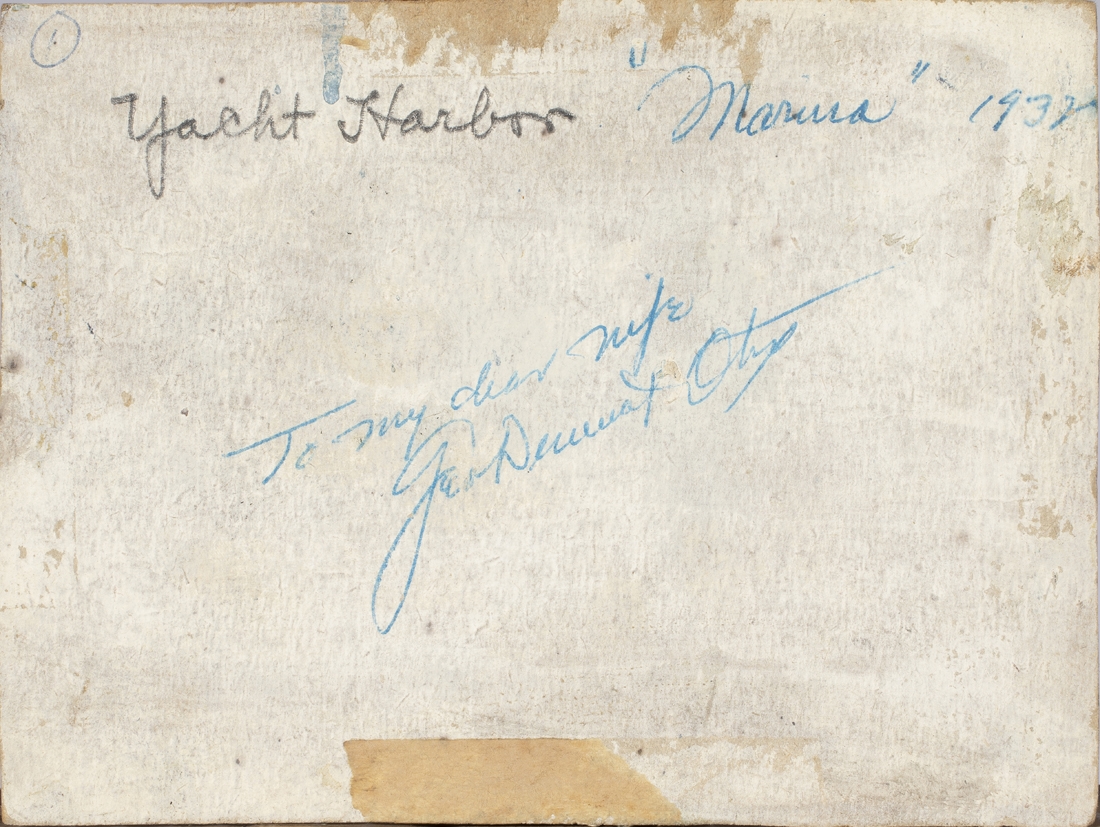 1
Yacht Harbor "Marina" 1937
To my dear wife
Geo Demont Otis